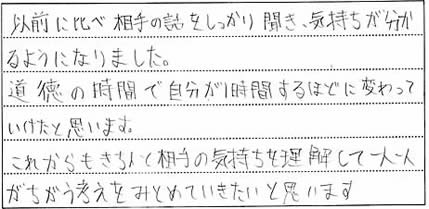 以前に比べ相手の話をしっかり聞き、気持ちが分か
るようになりました。
道徳の時間で自分が1時間するほどに変わって
いけたと思います。
これからもきちんと相手の気持ちを理解して一人一人
がちがう考えをみとめていきたいと思います